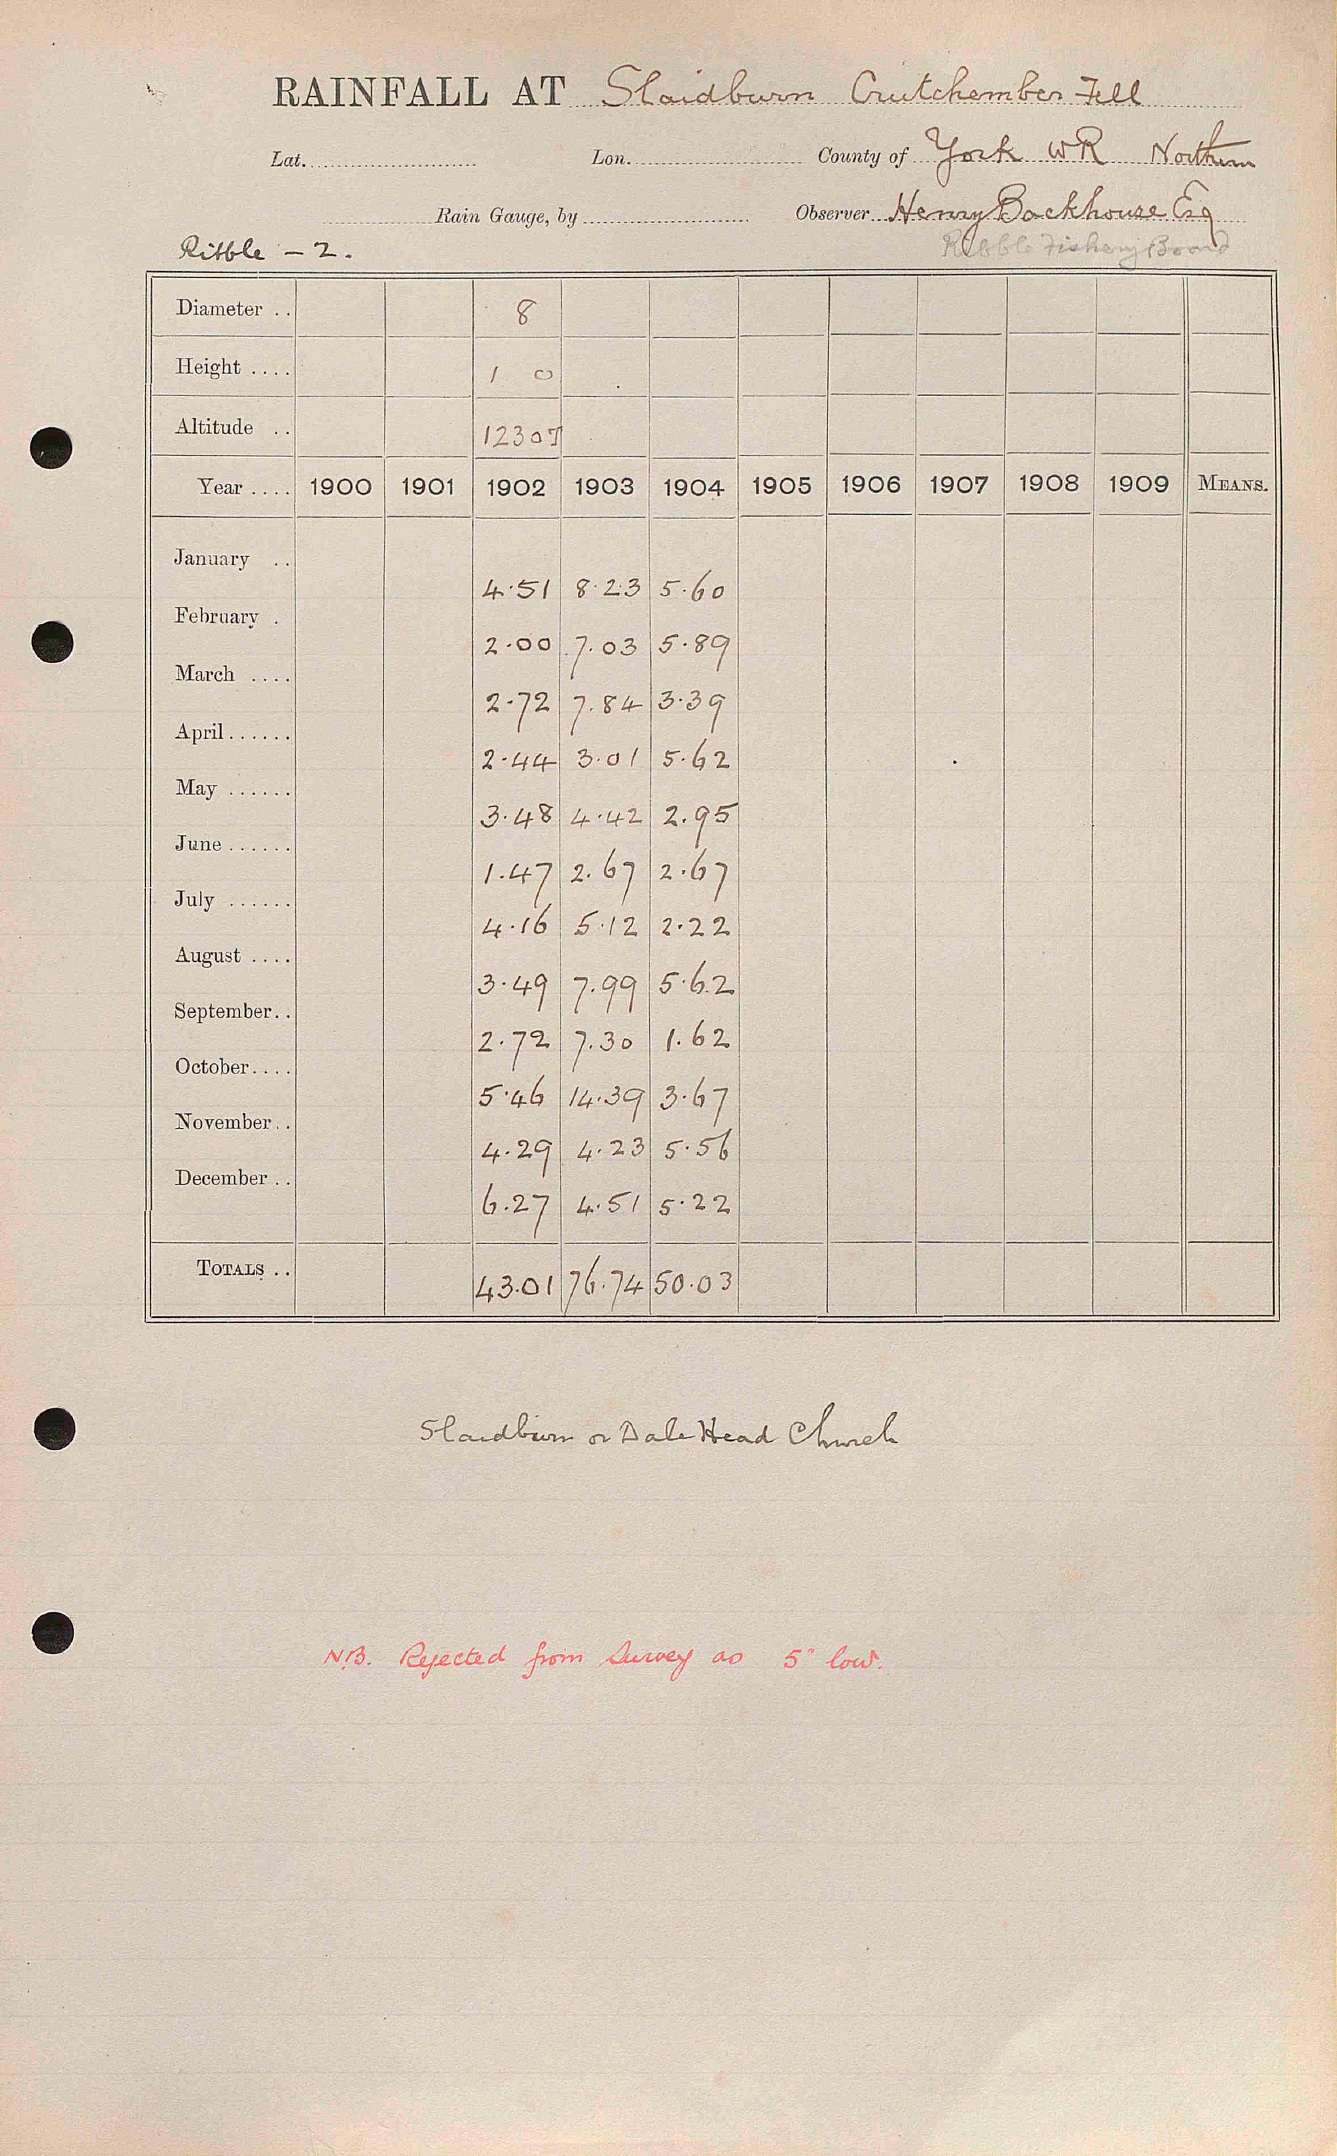 RAINFALL AT Slaidburn Crutchember Fell
Lat. Lon. County of York WR Northern
Rain Gauge, by Observer Henry Backhouse Esq
Ribble - 2. Ribble Fishery Board
Diameter .. 8
Height .... 1 0
Altitude .. 1230T
Year .... 1900 1901 1902 1903 1904 1905 1906 1907 1908 1909 MEANS.
January .. 4.51 8.23 5.60
February . 2.00 7.03 5.89
March .... 2.72 7.84 3.39
April...... 2.44 3.01 5.62
May ...... 3.48 4.42 2.95
June ...... 1.47 2.67 2.67
July ...... 4.16 5.12 2.22
August .... 3.49 7.99 5.62
September.. 2.72 7.30 1.62
October.... 5.46 14.39 3.67
November.. 4.29 4.23 5.56
December .. 6.27 4.51 5.22
TOTALS .. 43.01 76.74 50.03
Slaidburn or Dale Head Church
N.B. Rejected from Survey as 5" low.